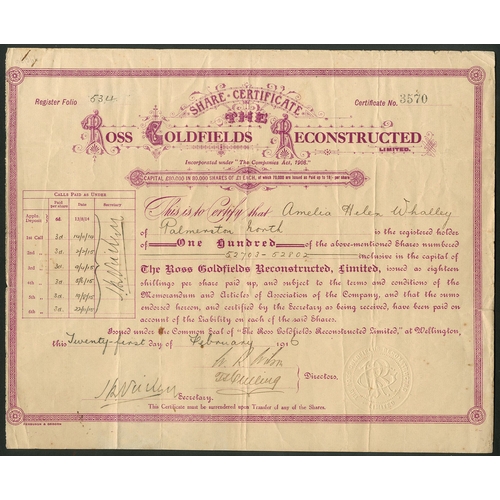 Register Folio 534
SHARE · CERTIFICATE
IN
Certificate No. 3570
THE
ROSS GOLDFIELDS RECONSTRUCTED
LIMITED.
Incorporated under "The Companies Act, 1908."
CAPITAL £80,000 IN 80,000 SHARES OF £1 EACH, of which 70,000 are issued as Paid up to 18/- per share
CALLS PAID AS UNDER
Paid per share Date Secretary
Applic. Deposit
1st Call 3d
2nd " 3d
3rd " 3d
4th " 3d
5th " 3d
6th " 3d
This is to Certify that Amelia Helen Whalley
of Palmerston North is the registered holder
of One Hundred of the above-mentioned Shares numbered
52703-52802 inclusive in the capital of
The Ross Goldfields Reconstructed, Limited, issued as eighteen
shillings per share paid up, and subject to the terms and conditions of the
Memorandum and Articles of Association of the Company, and that the sums
endorsed hereon, and certified by the Secretary as being received, have been paid on
account of the Liability on each of the said Shares.
Issued under the Common Seal of "The Ross Goldfields Reconstructed Limited," at Wellington,
this Twenty-first day of February 1916
Directors.
Secretary.
This Certificate must be surrendered upon Transfer of any of the Shares.